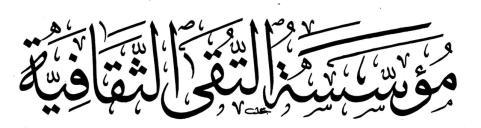 مُؤَسَّسَةُ التُّقَى الثَّقَافِيَّة